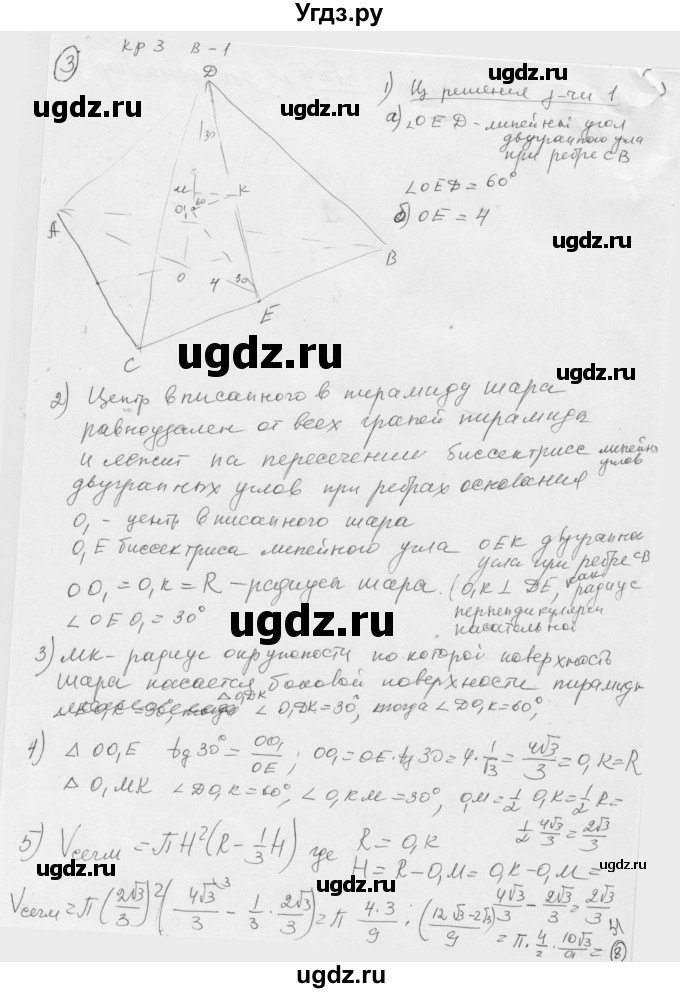 Угдз.ру
③ кр 3 В-1
D
30
M K
60
O₁
A
B
O 4 30
E
C
1) Из решения з-чи 1
а) ∠OED - линейный угол
двугранного угла
при ребре CB
∠OED = 60°
б) OE = 4
ugdz.ru
ugdz.ru
ugdz.ru
ugdz.ru
2) Центр вписанного в пирамиду шара
равноудален от всех граней пирамиды
и лежит на пересечении биссектрис линейных
углов
двугранных углов при ребрах основания
O₁ - центр вписанного шара
O₁E биссектриса линейного угла OEK двугранного
угла при ребре CB
OO₁ = O₁K = R - радиусы шара. (O₁K ⊥ DE, как
радиус
∠OEO₁ = 30° перпендикулярен
касательной
ugdz.ru
ugdz.ru
3) MK - радиус окружности по которой поверхность
шара касается боковой поверхности пирамиды
△O₁DK
∠O₁DK = 30°, тогда ∠DO₁K = 60°,
4) △OO₁E tg 30° = OO₁/OE ; OO₁ = OE · tg 30 = 4 · 1/√3 = 4√3/3 = O₁K = R
△O₁MK ∠DO₁K = 60°, ∠O₁KM = 30°, O₁M = 1/2 O₁K = 1/2 R =
1/2 · 4√3/3 = 2√3/3
5) Vсегм = πH²(R - 1/3 H) где R = O₁K
H = R - O₁M = O₁K - O₁M =
4√3/3 - 2√3/3 = 2√3/3
Vсегм = π(2√3/3)²(4√3/3 - 1/3 · 2√3/3) = π 4·3/9 · (12√3-2√3/9)
= π · 4/3 · 10√3/9 =
⑧
ugdz.ru
ugdz.ru
ugdz.ru
ugdz.ru
ugdz.ru